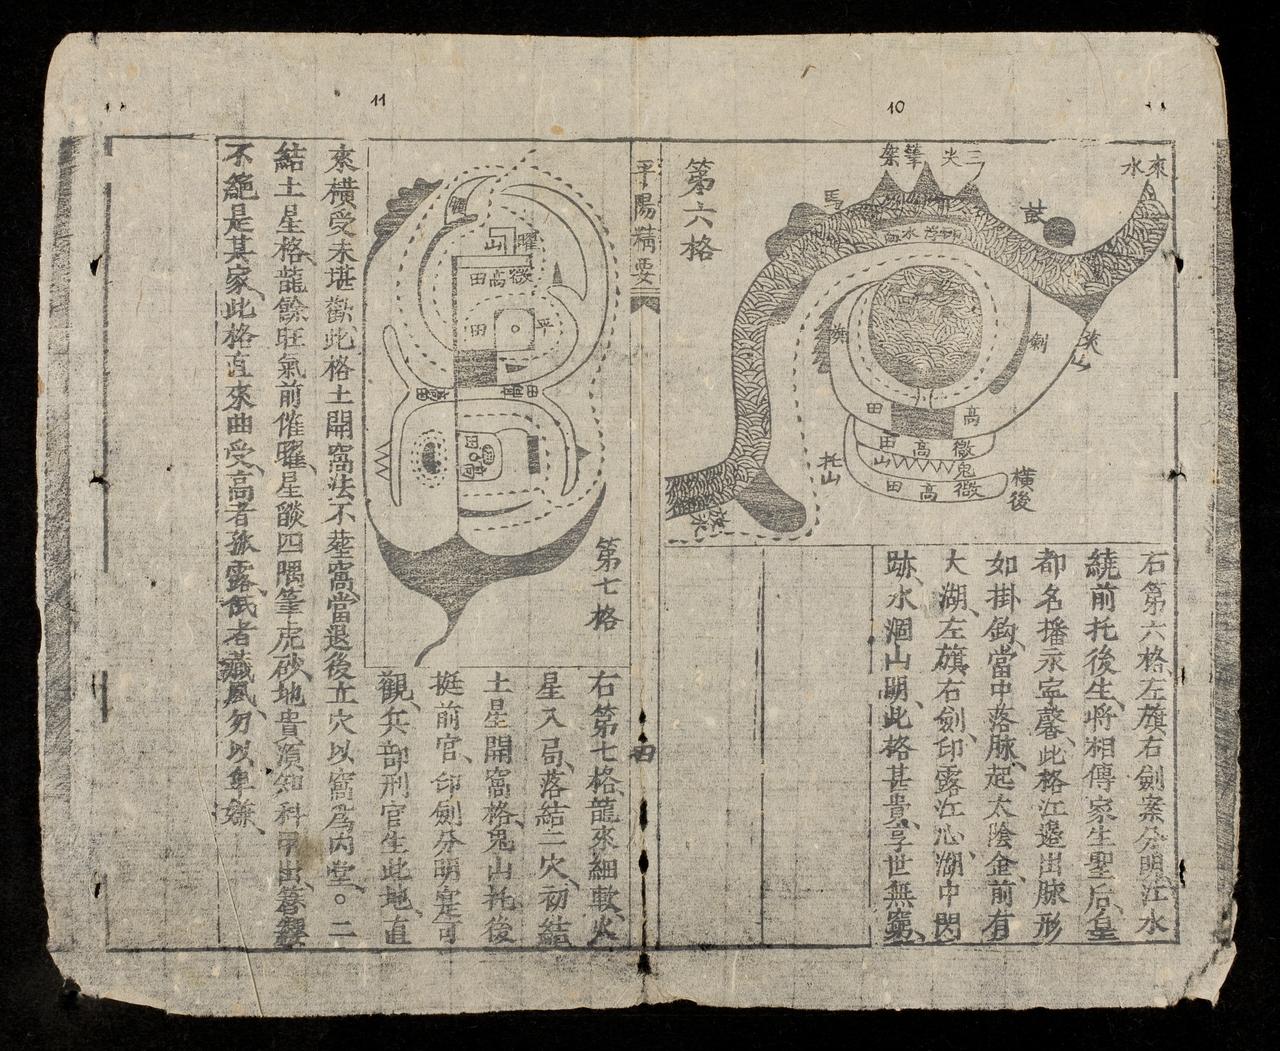 10
第六格
來水
鼓
三尖
筆架
馬
來山
劍
旗
高田
微高田
鬼山
微高田
橫後
托山
右第六格、左旗右劍案分明、江水
繞前托後生、將相傳家生聖后、皇
都名播永寧馨、此格江邊出脉形
如掛鈎、當中落脉、起太陰金、前有
大湖、左旗右劍、印露江心、湖中閃
跡、水涸山明、此格甚貴、享世無窮、
平陽精要
四
11
第七格
曜山
微高田
平田
右第七格、龍來細軟、火
星入局、落結二穴、初結
土星開窩格、鬼山托後
挺前官、印劍分明寔可
觀、兵部刑官生此地、直
來橫受未堪歡、此格土開窩法不塟窩、當退後立穴以窩爲内堂。二
結土星格、龍餘旺氣前催、曜星燄四隅筆虎砂、地貴須知科甲出、簪纓
不絶是其家、此格直來曲受、高者孤露、低者藏風、勿以卑嫌、